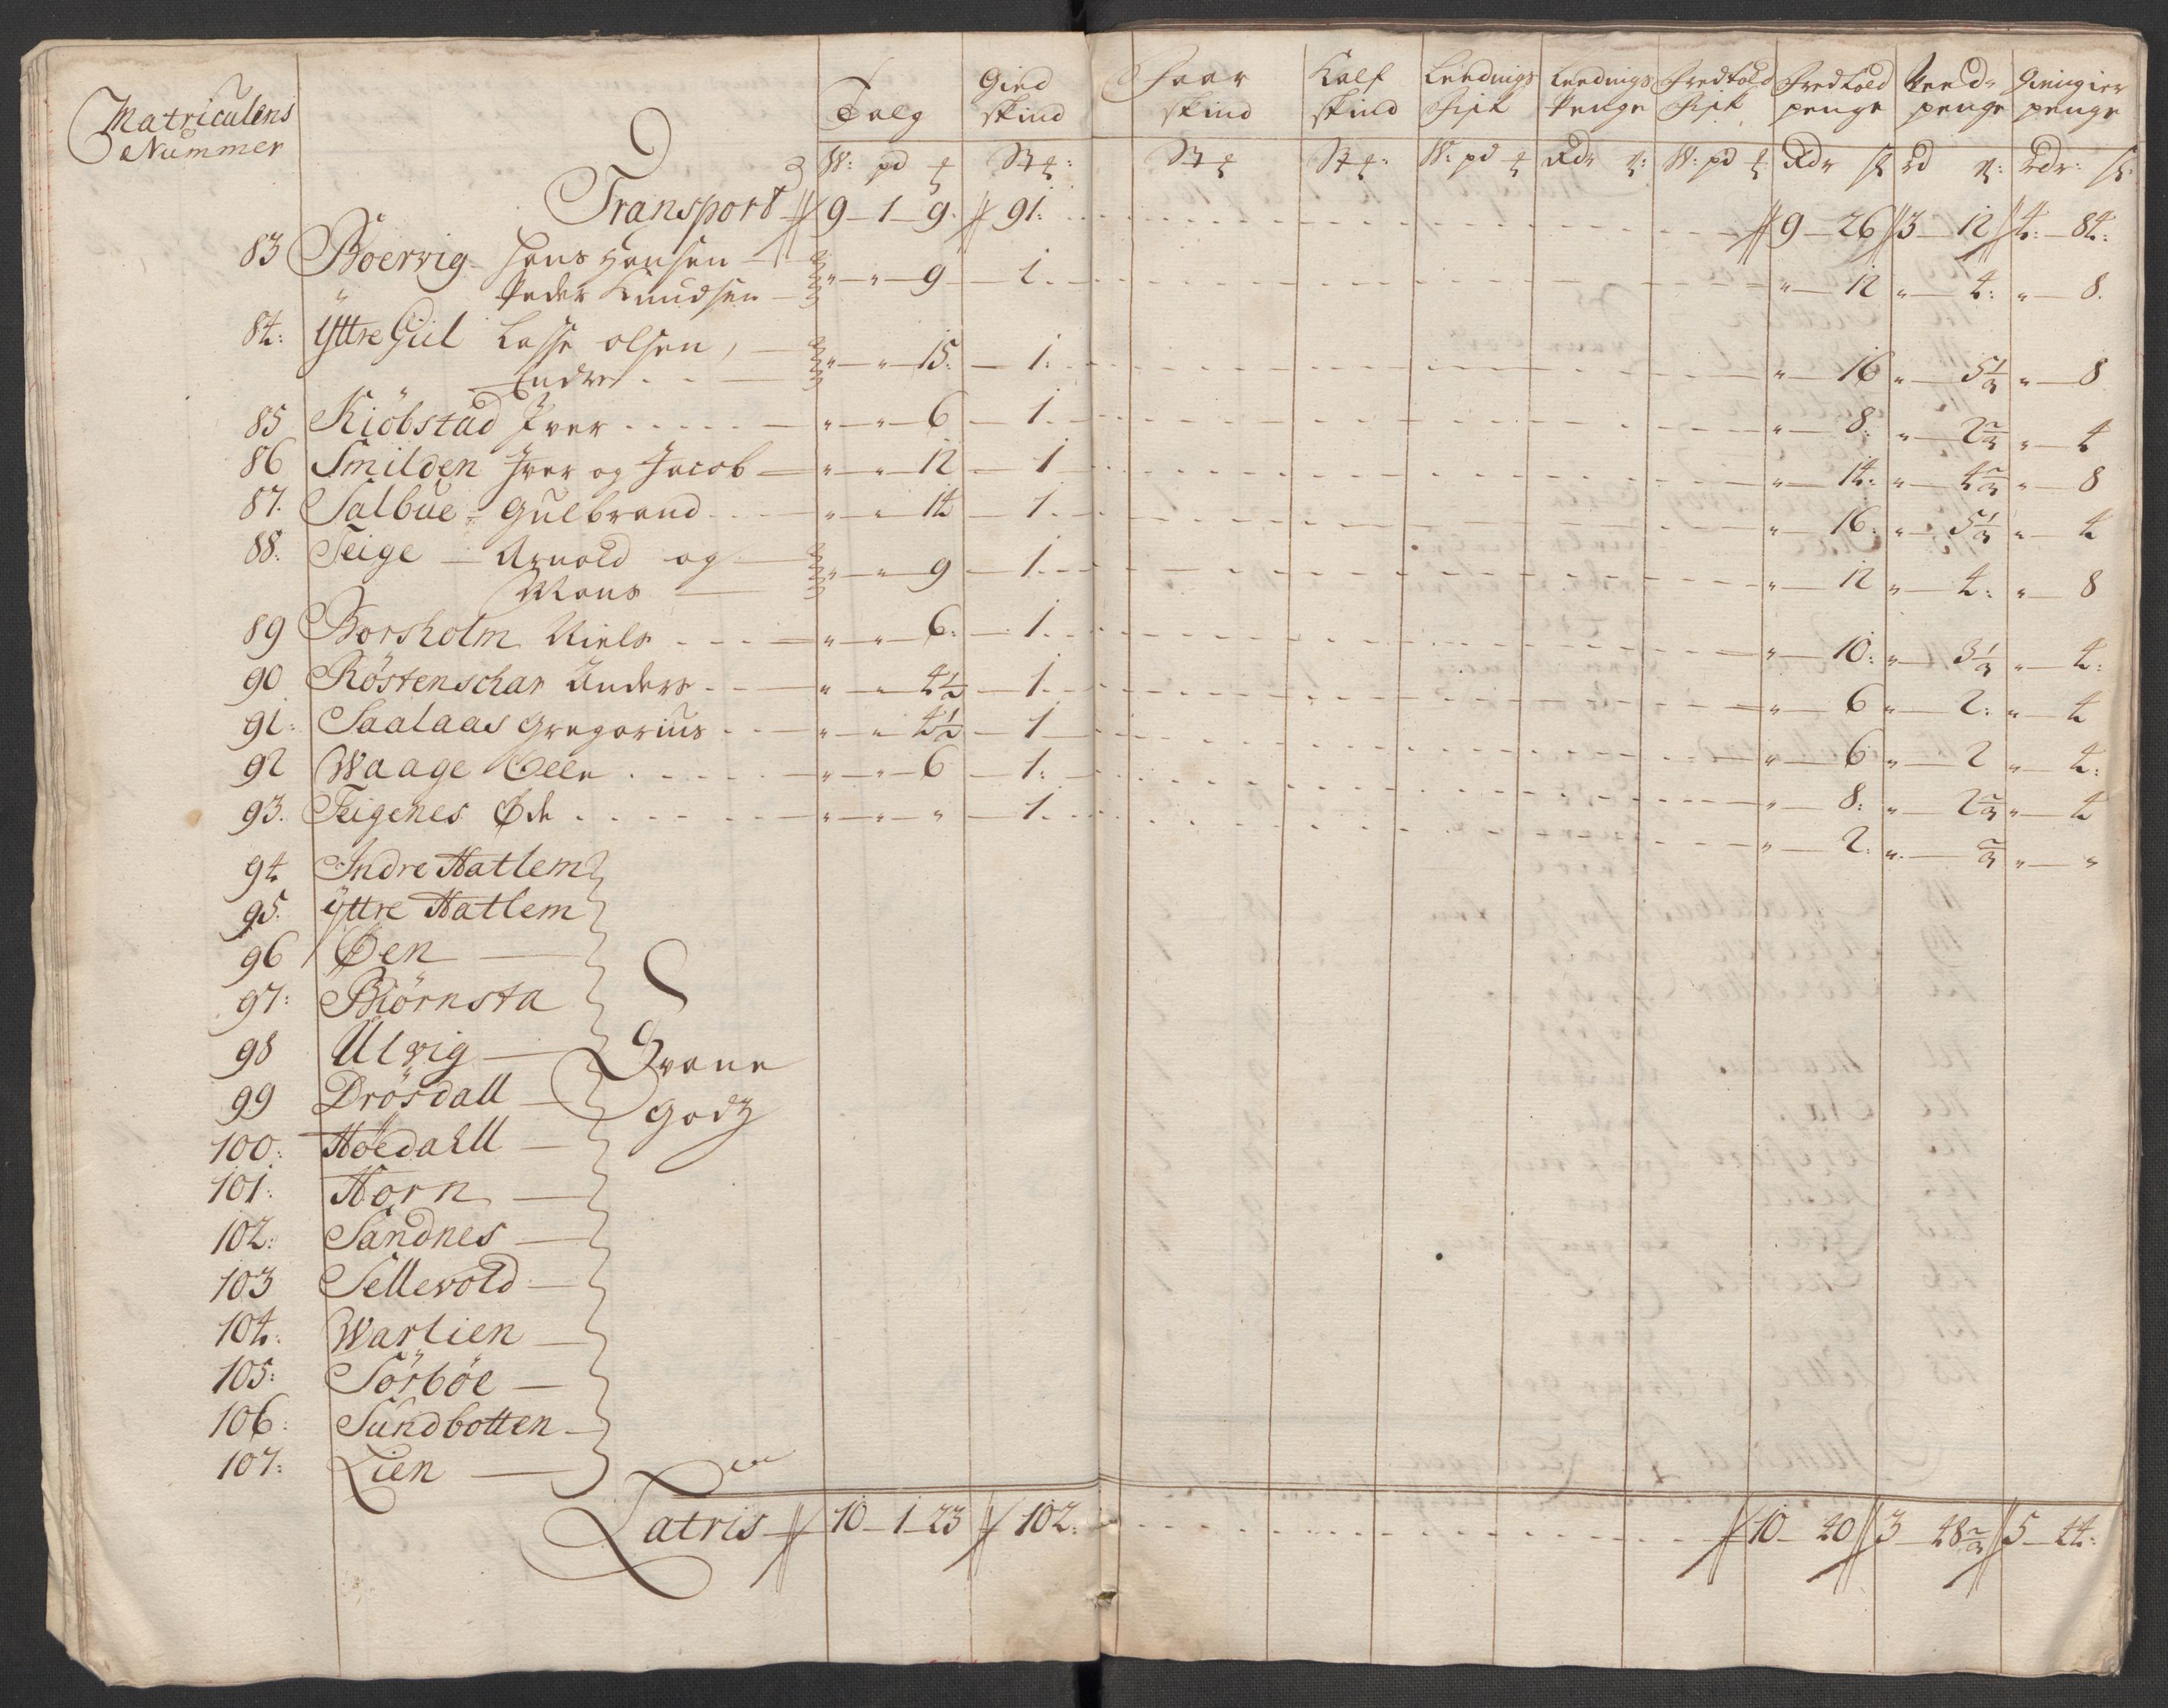 Matriculens Nummer | Talg | Gied skind | Faar skind | Kalf skind | Leedings Fisk | Leedings Penge | Fredtold Fisk | Fredtold penge | penge | penge
W: pd | | | | W: pd | Rdr | W: pd | Rdr | rd | rdr:
Transport 9 – 1 – 9. 91: 9 – 26 3 – 12 4: – 84:
83 Boervig – Hans Hansen
Peder Knudsen " – " – 9 – 1. " – 12 " – 4: " – 8.
84: Ÿttre Giil Lasse olsen,
Endre " – " – 15: – 1: " – 16 " – 5 1/3 " – 8
85 Kiöbstad Iver " – " – 6 – 1. " – 8: " – 2 2/3 " – 4
86 Smilden Iver og Jacob – " – " – 12 – 1 " – 14: " – 4 2/3 " – 8
87. Salbue – Gulbrand " – " – 14 – 1. " – 16: " – 5 1/3 " – 4
88. Teige – Arnold og
Mons " – " – 9 – 1. " – 12 " – 4: " – 8
89 Borsholm Niels " – " – 6: – 1. " – 10: " – 3 1/3 " – 4:
90 Röstenschar Anders " – " – 4 1/2 – 1. " – 6 " – 2: " – 4
91: Saalaas Gregorius " – " – 4 1/2 – 1 " – 6 " – 2 " – 4:
92 Waage Olle " – " – 6 – 1: " – 8: " – 2 2/3 " – 4
93. Teigenes Øde " – " – " – 1. " – 2: " – 2/3 " – "
94 Indre Hatlem
95. ÿttre Hatlem
96 Øen
97: Biörnsta
98 Ulvig –
Svane
99 Drösdall
Godz
100: Höedahll
101: Horn
102: Sandnes
103 Sellevold
104: Warlien
105: Sörböe
106: Sundbotten
107: Lien
Latris 10 – 1 – 23 102: 10 – 40 3 – 48 2/3 5 – 44: